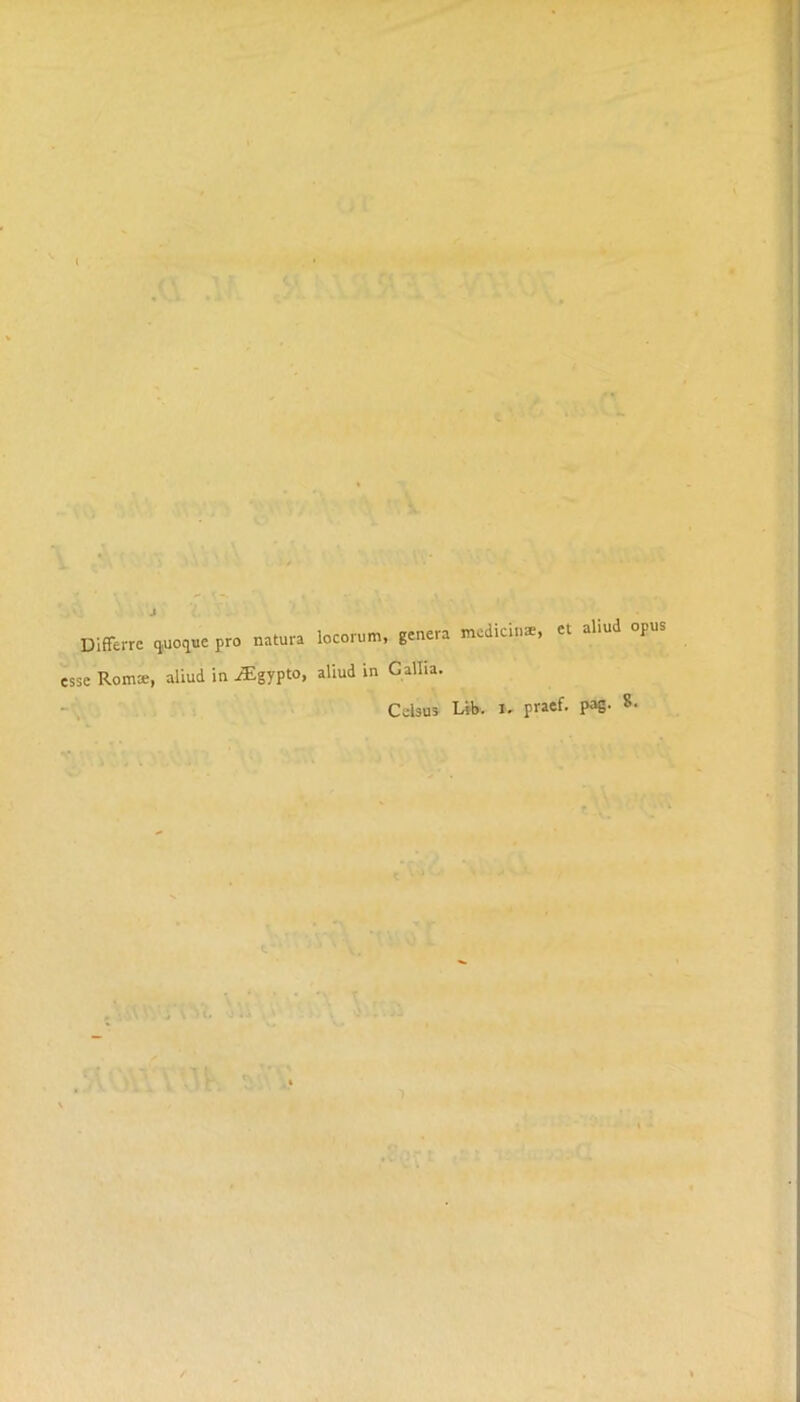 Differre quoque pro natura locorum, genera medicinæ, et aliud opus
esse Romæ, aliud in Ægypto, aliud in Gallia.
Celsus Lib. 1. praef. pag. 8.